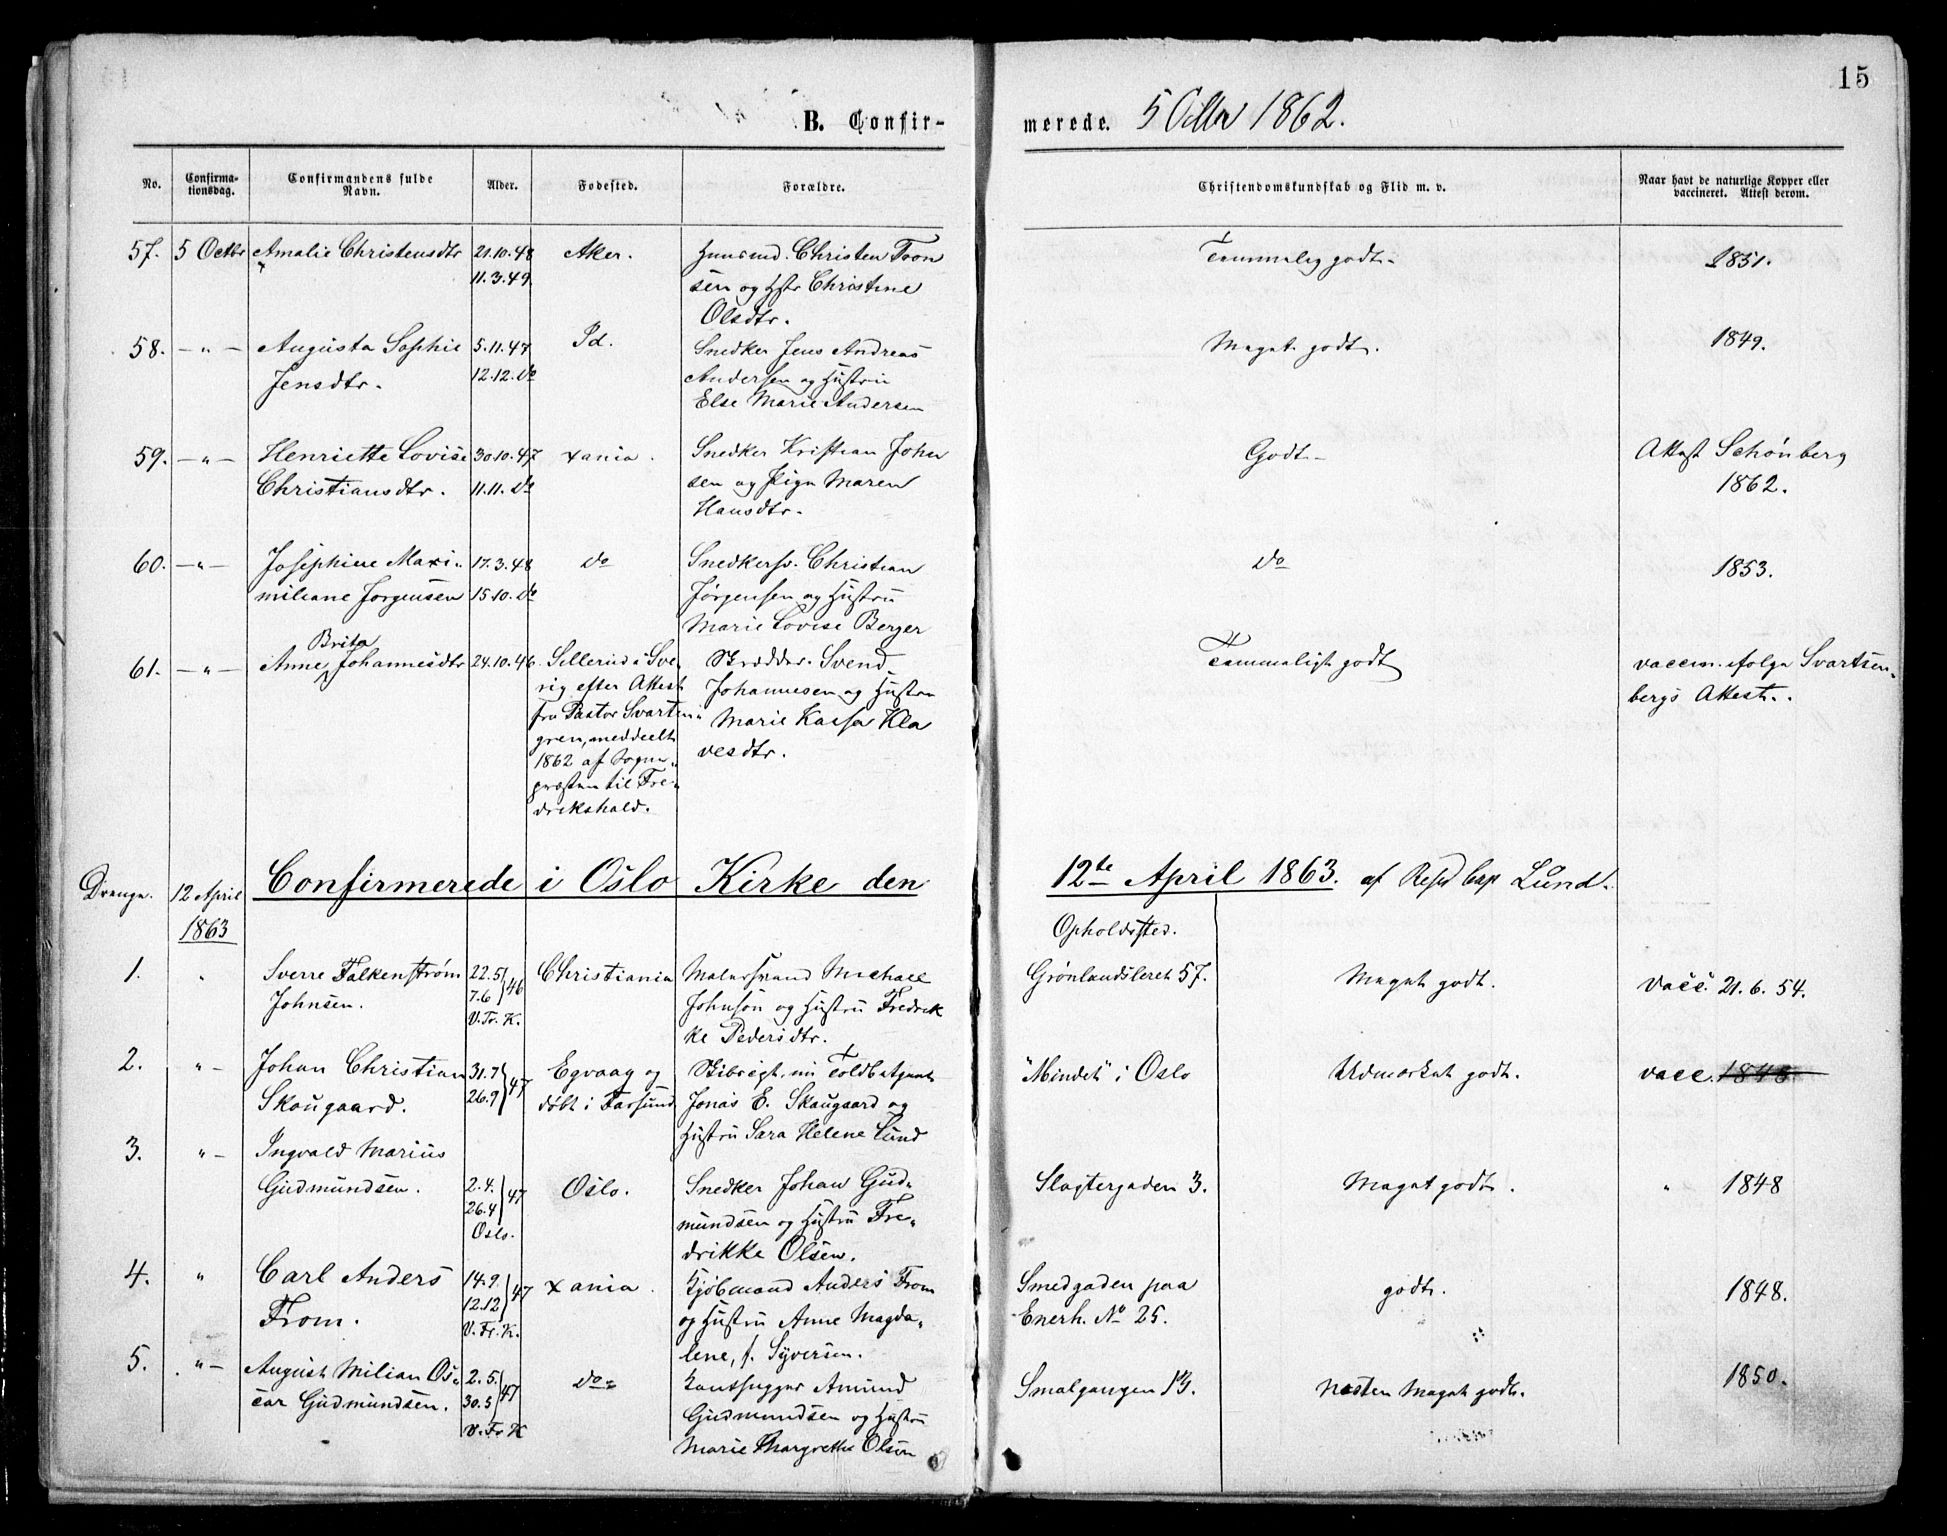 15
B. Confir-
merede. 5 Octbr 1862.
No.
Confirma-
tionsdag.
Confirmandens fulde
Navn.
Alder.
Fødested.
Forældre.
Christendomskundskab og Flid m. v.
Naar havt de naturlige Kopper eller
vaccineret. Attest derom.
57. 5 Octbr Amalie Christensdtr 21.10.48 Aker. Huusmd. Christen Tron Temmelig godt. 1851.
11.3.49 sen og Hstr Christine
Olsdtr.
58. -"- Augusta Sophie 5.11.47 Id. Snedker Jens Andreas Meget godt. 1849.
Jensdtr. 12.12. do Andersen og Hustru
Else Marie Andersen
59. -"- Henriette Lovise 30.10.47 Xania. Snedker Kristian Johan Godt Attest Schønberg
Christiansdtr. 11.11. do sen og Pige Maren 1862.
Hansdtr.
60. -"- Josephine Maxi- 17.3.48 do Snedkersv. Christian do 1853.
miliane Jørgensen 15.10. do Jørgensen og Hustru
Marie Lovise Berger
Brita
61. -"- Anne Johannesdtr 24.10.46 Sillerud i Sve- Skrædder Svend Temmelig godt vaccin. ifølge Svartsen-
rig efter Attest Johannesen og Hustru bergs Attest.
fra Pastor Svarten- Marie Kassa Kla
gren, meddeelt vesdtr.
1862 af Sogne-
præsten til Fre-
drikshald.
Drenge. 12 April Confirmerede i Oslo Kirke den 12te April 1863. af Resd Cap Lund.
1863
Opholdssted.
1. " Sverre Falkenstrøm 22.5 46 Christiania Matersvand Michael Grønlandsleret 57. Meget godt. vacc. 21. 6. 54.
Johnsen. 7.6 Johnson og Hustru Fredrik
V. Fr. K. ke Pedersdtr.
2. "- Johan Christian 31.7 47 Egvaag og Skibsrigt, nu Toldbetjent "Mindet" i Oslo Udmærket godt. vacc. 1848.
Skougaard. 26.9 døbt i Farsund Jonas E. Skougaard og
Hustru Sara Helene Lund
3. "- Ingvald Marius
Gudmundsen. 2.4. 47 Oslo. Snedker Johan Gud- Slagtergaden 3. Meget godt. " 1848
26.4 mundsen og Hustru Fre-
Oslo. drikke Olsen.
4. " Carl Anders 14.9. 47 Xania. Kjøbmand Anders From Smedgaden paa godt. 1848.
From. 12.12 og Hustru Anne Magda- Enerh. No 25.
V. Fr. K. lene, f. Syversen.
5. "- August Milian Os- 2.5. 47 do Kantsugger Amund Smalgangen 13. Næsten Meget godt. 1850.
car Gudmundsen. 30.5 Gudmundsen og Hustru
V. Fr. K Marie Margrethe Olsen